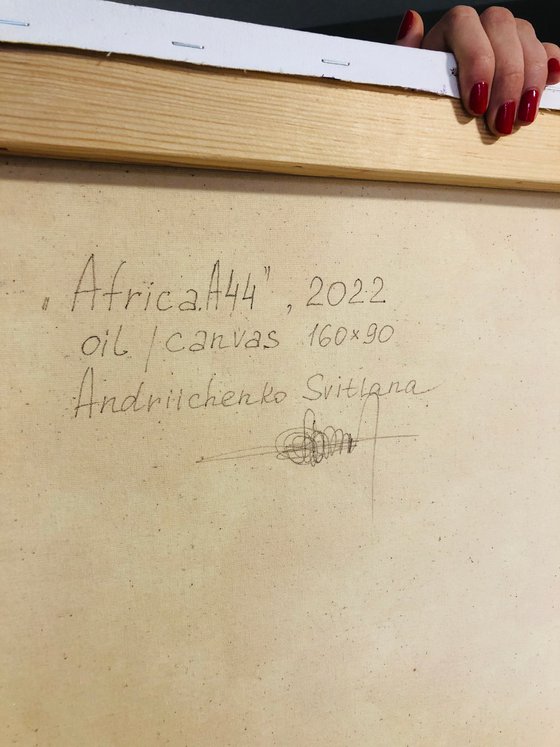 „Africa.A44", 2022
oil / canvas 160×90
Andriichenko Svitlana